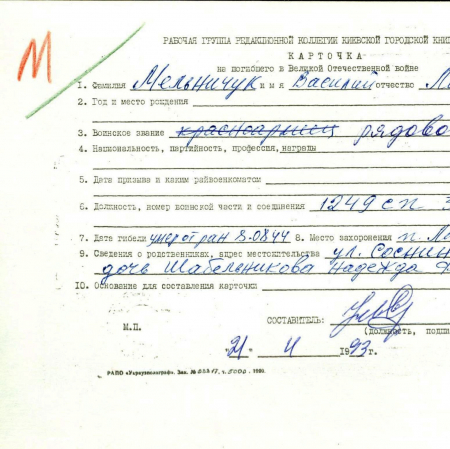 М
РАБОЧАЯ ГРУППА РЕДАКЦИОННОЙ КОЛЛЕГИИ КИЕВСКОЙ ГОРОДСКОЙ КНИ
КАРТОЧКА
на погибшего в Великой Отечественной войне
1. Фамилия Мельничук имя Василий отчество
2. Год и место рождения
3. Воинское звание красноармеец рядово
4. Национальность, партийность, профессия, награды
5. Дата призыва и каким райвоенкоматом
6. Должность, номер воинской части и соединения 1249 сп
7. Дата гибели умер от ран 8.0844 8. Место захоронения
9. Сведения о родственниках, адрес местожительства ул. Соснин
дочь Шабельникова Надежда
10. Основание для составления карточки
СОСТАВИТЕЛЬ:
М.П. (должность, подпи
"21" 4 1993г.
РАПО «Укрвузполиграф». Зак. 1990.